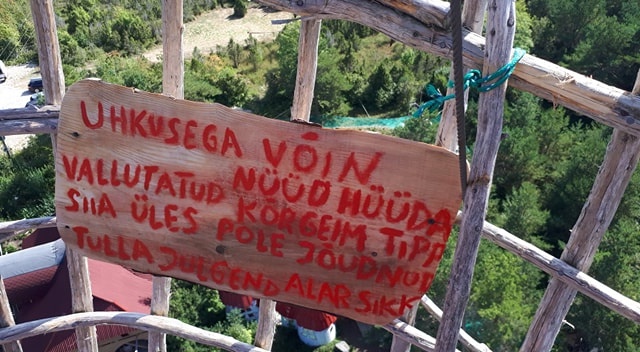 UHKUSEGA VÕIN
NÜÜD HÜÜDA
VALLUTATUD KÕRGEIM TIPP
SIIA ÜLES POLE JÕUDNUD
TULLA JULGEND ALAR SIKK